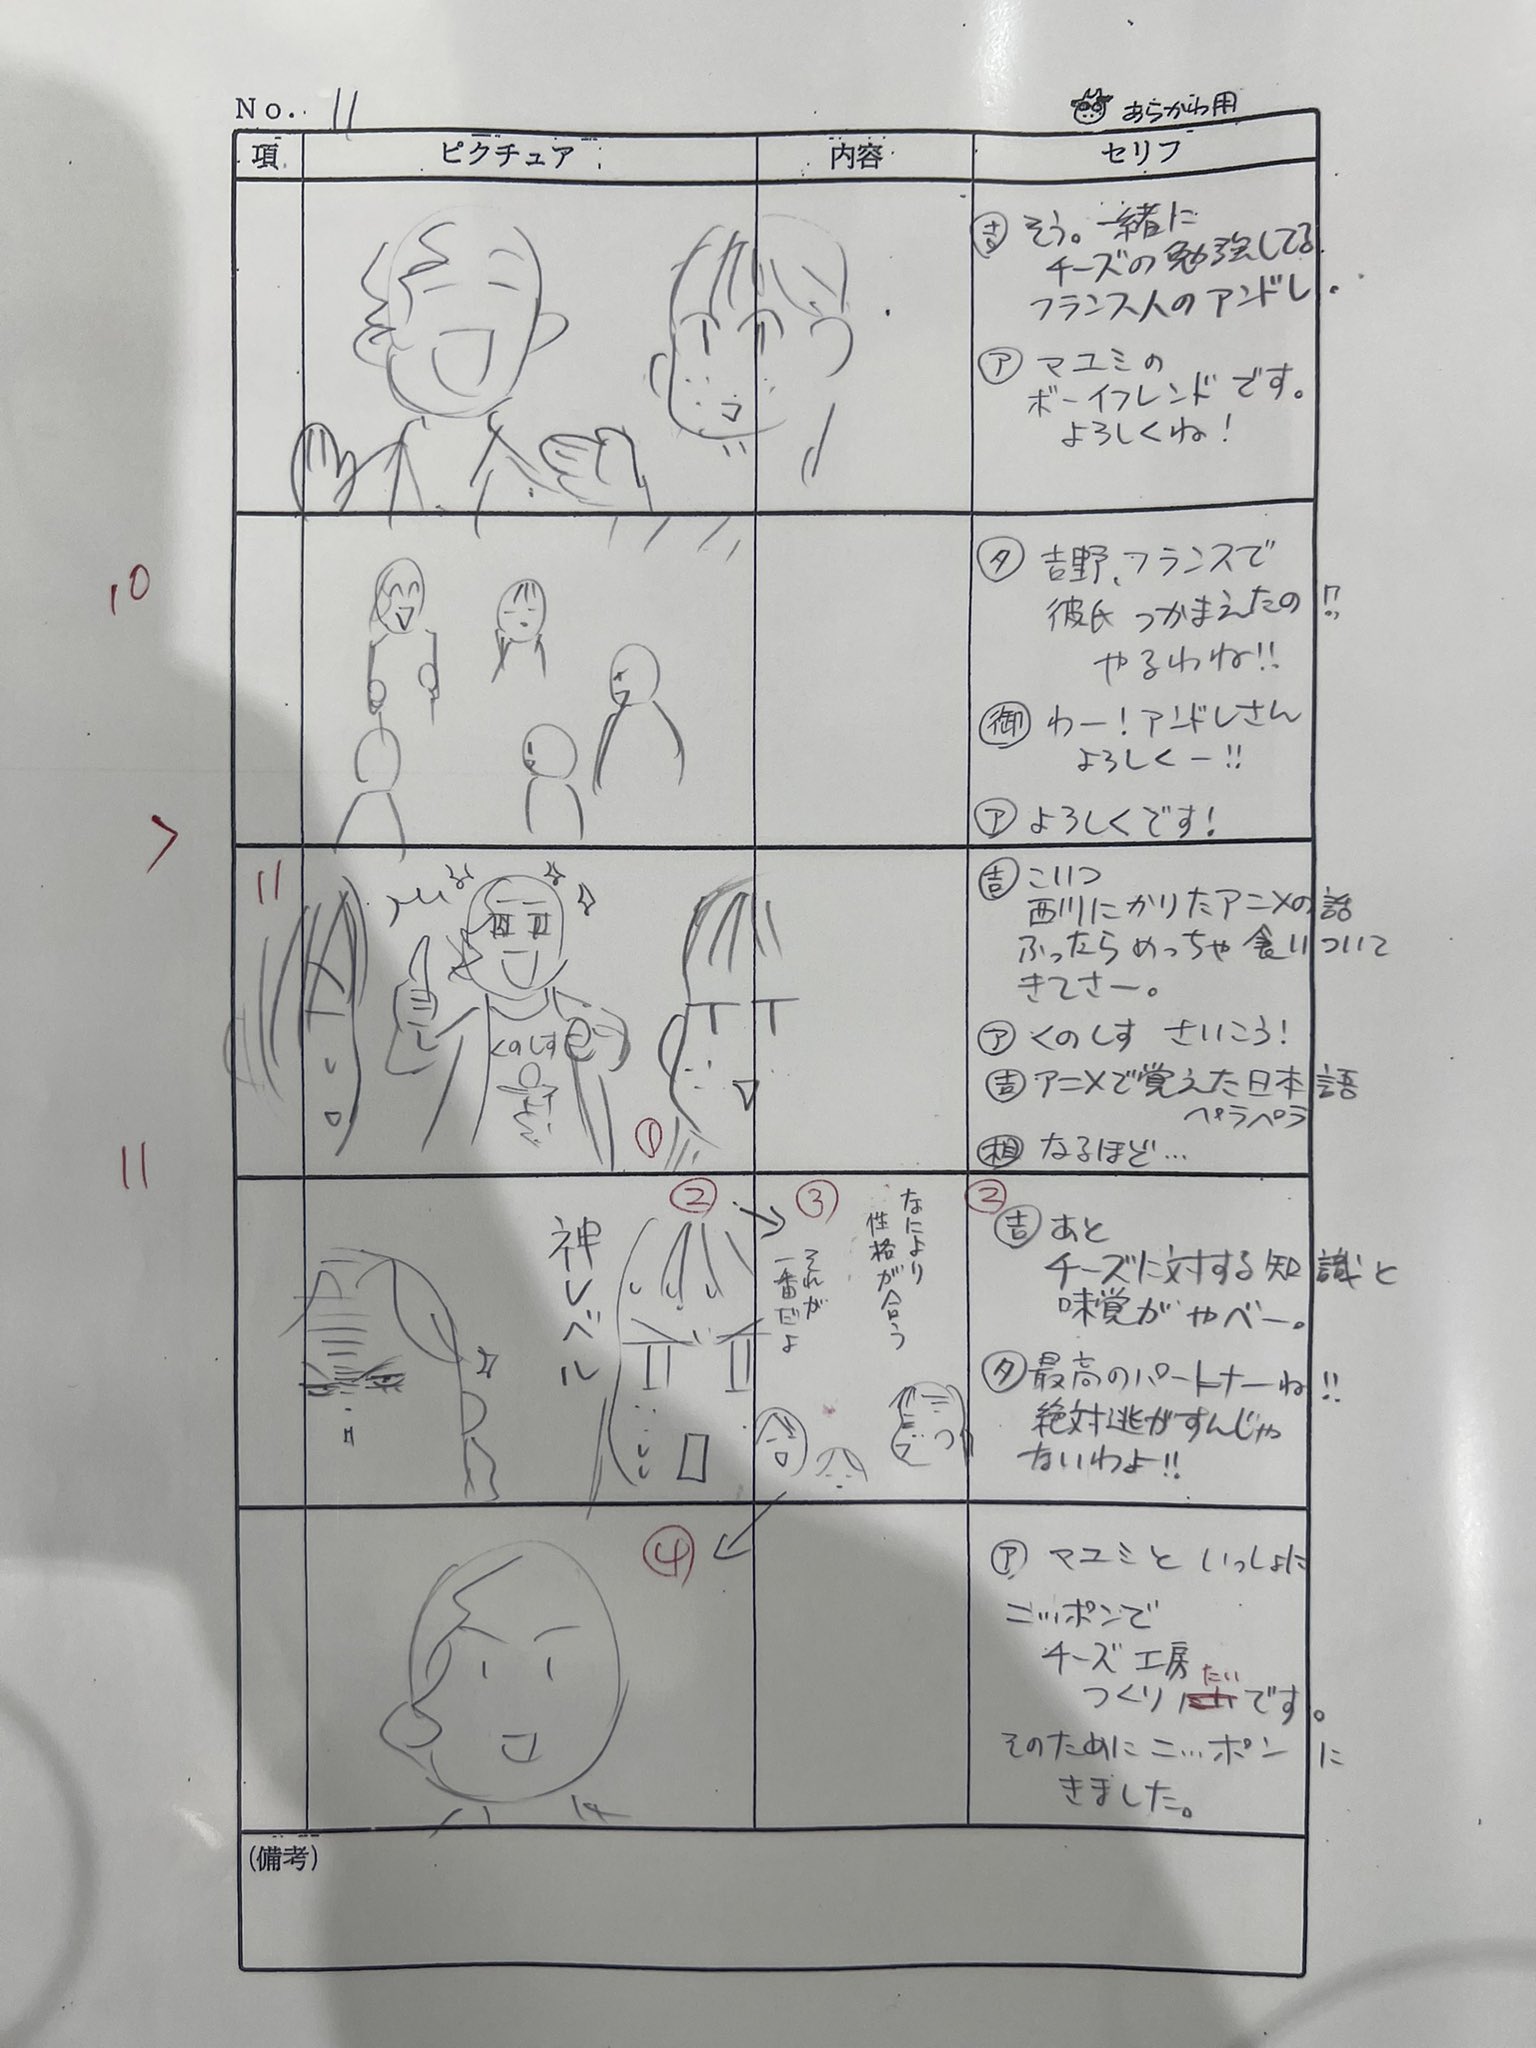 No. 11
あらかわ用
項
ピクチュア
内容
セリフ
吉 そう。一緒に
チーズの勉強してる
フランス人のアンドレ.
ア マユミの
ボーイフレンドです。
よろしくね!
10
タ 吉野、フランスで
彼氏つかまえたの!?
やるわね!!
御 わー!アンドレさん
よろしくー!!
ア よろしくです!
11
くのしす
①
吉 こいつ
西川にかりたアニメの話
ふったらめっちゃ食いついて
きてさー。
ア くのしす さいこう!
吉 アニメで覚えた日本語
ペラペラ
相 なるほど…
11
神レベル
②
③
なにより
性格が合う
それが
一番だよ
②
吉 あと
チーズに対する知識と
味覚がやべー。
タ 最高のパートナーね!!
絶対逃がすんじゃ
ないわよ!!
④
ア マユミといっしょに
ニッポンで
チーズ工房
たい
つくり です。
そのためにニッポンに
きました。
(備考)